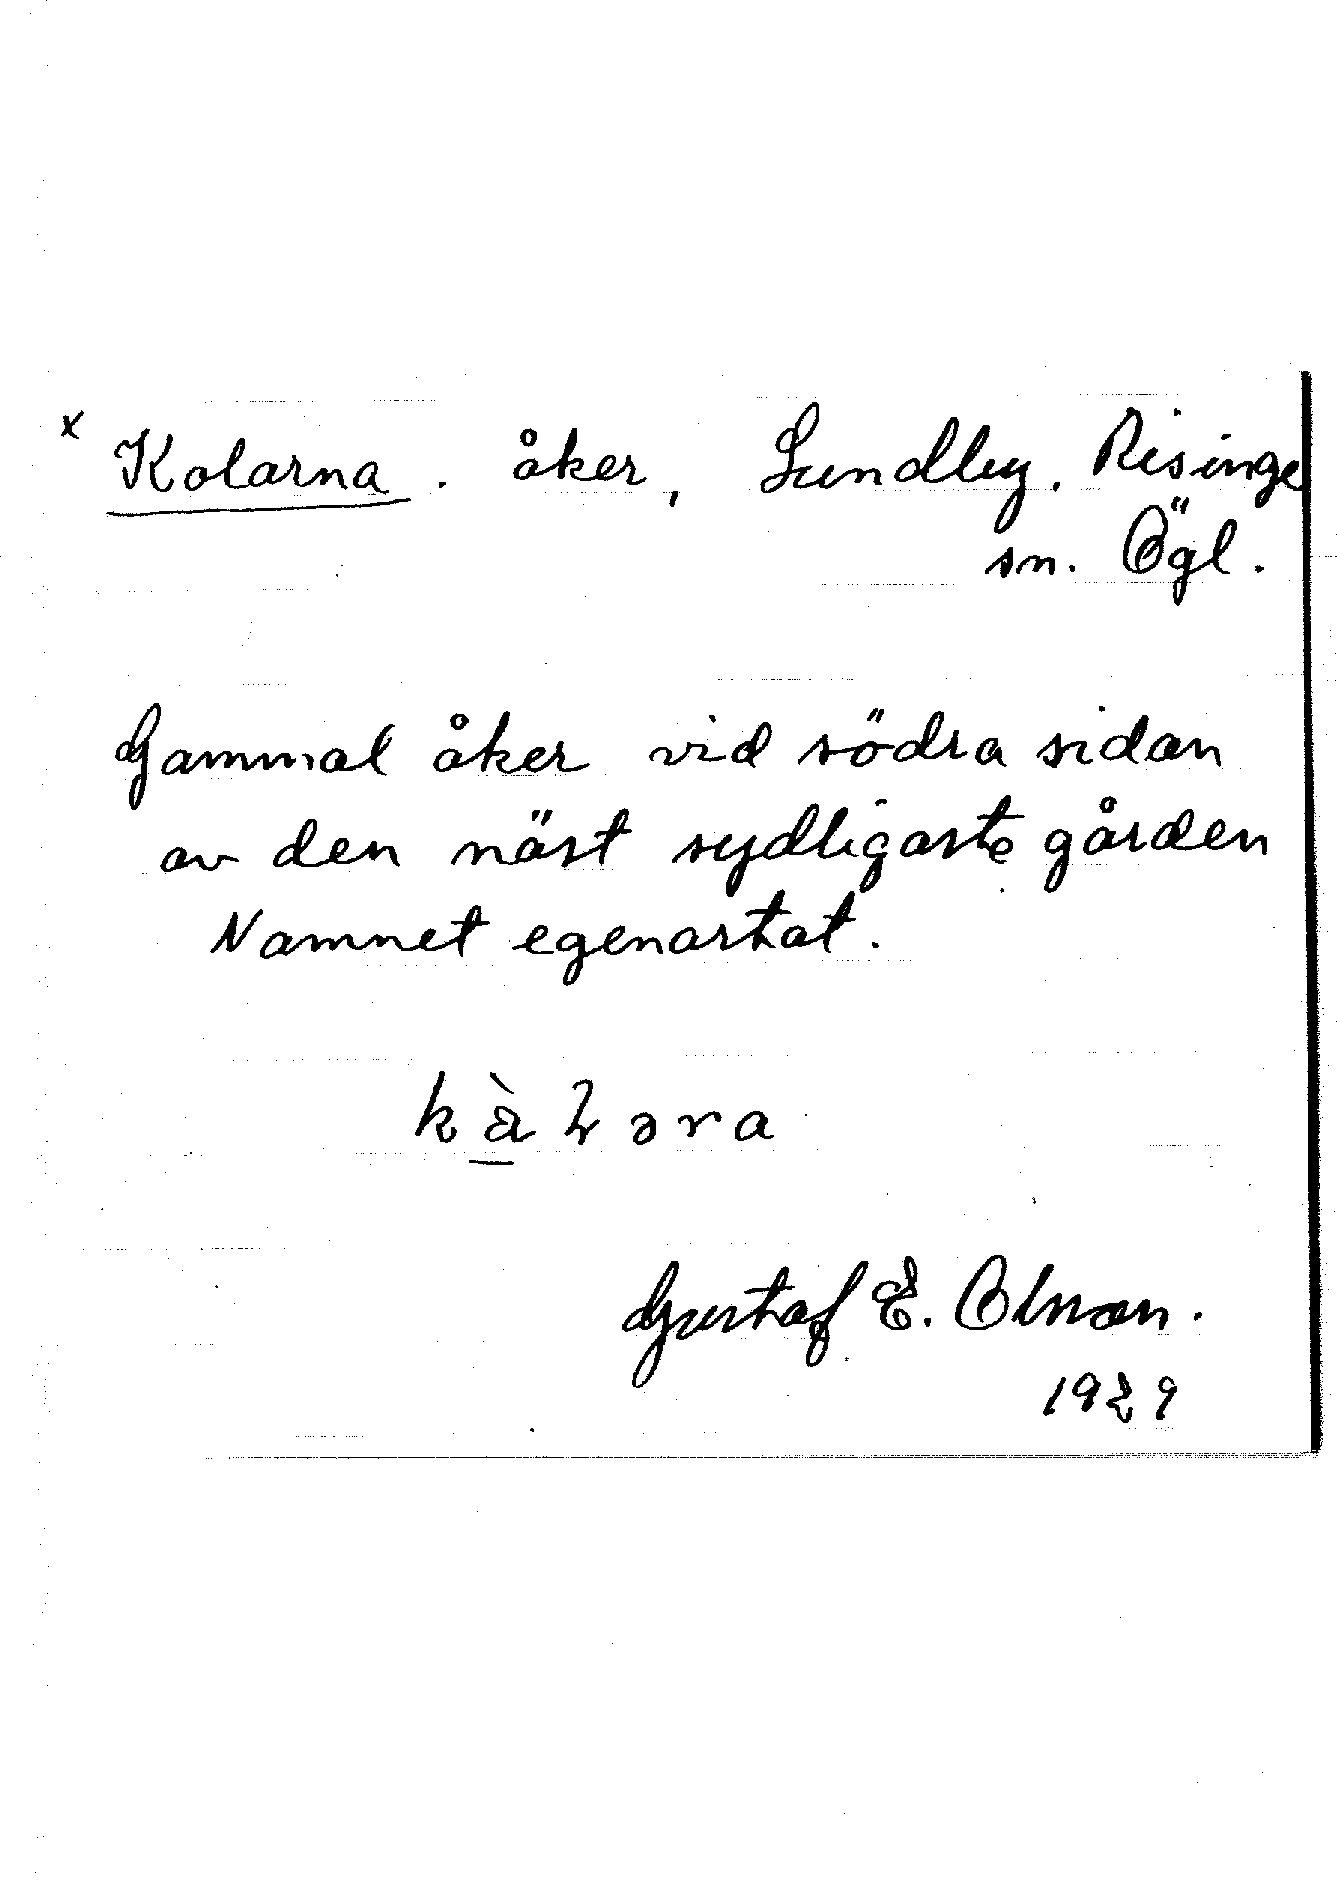 x Kolarna. åker, Lundby. Risinge
sn. Ögl.
Gammal åker vid södra sidan
av den näst sydligaste gården
Namnet egenartat.
Gustaf E. Olman.
1929